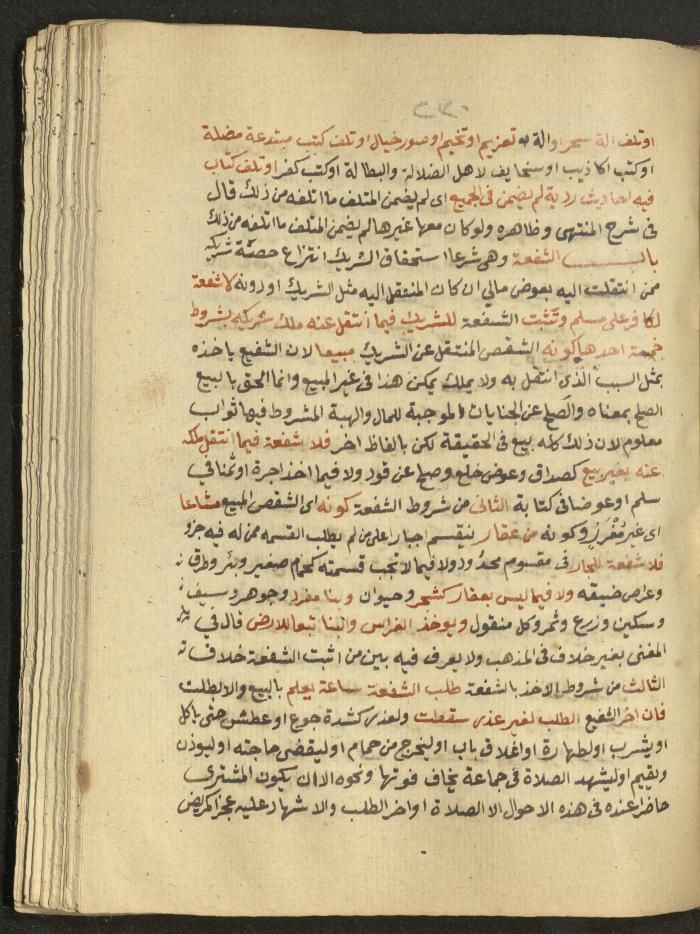 ٢٣٠
او تلف الة سحر او الة تعزيم او تنجيم او صور خيال او تلف كتب مبتدعة مضلة
او كتب اكاذيب او سخايف لاهل الضلالة والبطالة او كتب كفر او تلف كتاب
فيه احاديث ردية لم يضمن فى الجميع اى لم يضمن المتلف ما اتلفه من ذلك قال
فى شرح المنتهى وظاهره ولو كان معها غيرها لم يضمن المتلف ما اتلفه من ذلك
باب الشفعة وهى شرعا استحقاق الشريك انتزاع حصة شريكه
ممن انتقلت اليه بعوض مالي ان كان المنتقل اليه مثل الشريك او دونه لا شفعة
لكافر على مسلم وتثبت الشفعة للشريك فيما انتقل عنه ملك شريكه بشروط
خمسة احدها كونه الشقص المنتقل عن الشريك مبيعا لان الشفيع ياخذه
بمثل السبب الذى انتقل به ولا يملك يمكن هذا فى غير المبيع وانما الحق بالبيع
الصلح بمعناه والصلح عن الجنايات الموجبة للمال والهبة المشروط فيها ثواب
معلوم لان ذلك كله بيع فى الحقيقة لكن بالفاظ اخر فلا شفعة فيما انتقل ملكه
عنه بغير بيع كصداق وعوض خلع وصلح عن قود ولا فيما اخذ اجرة او ثمنا في
سلم او عوضا فى كتابة الثانى من شروط الشفعة كونه اى الشقص المبيع مشاعا
اى غير مُفْرَزٍ وكونه من عقار ينقسم اجبار على من لم يطلب القسمه ممن له فيه جزو
فلا شفعة للجار فى مقسوم محدود ولا فيما لا تجب قسمته كحمام صغير وبئر وطرق
وعراص ضيقه ولا فيما ليس بعقار كشجر وحيوان وبنا مفرد وجوهر وسيف
وسكين وزرع وثمر وكل منقول ويوخذ الغراس والبنا تبعا للارض قال في
المغنى بغير خلاف فى المذهب ولا يعرف فيه بين من اثبت الشفعة خلاف
الثالث من شروط الاخذ بالشفعة طلب الشفعة ساعة يعلم بالبيع والا بطلت
فان اخر الشفيع الطلب لغير عذر سقطت ولعذر كشدة جوع او عطش حتى ياكل
او يشرب او لطهارة او اغلاق باب او ليخرج من حمام او ليقضى حاجته او ليوذن
ويقيم او ليشهد الصلاة فى جماعة يخاف فوتها ونحوه الا ان يكون المشترى
حاضرا عنده فى هذه الاحوال الا الصلاة او اخر الطلب والاشهاد عليه عجزا كمريض